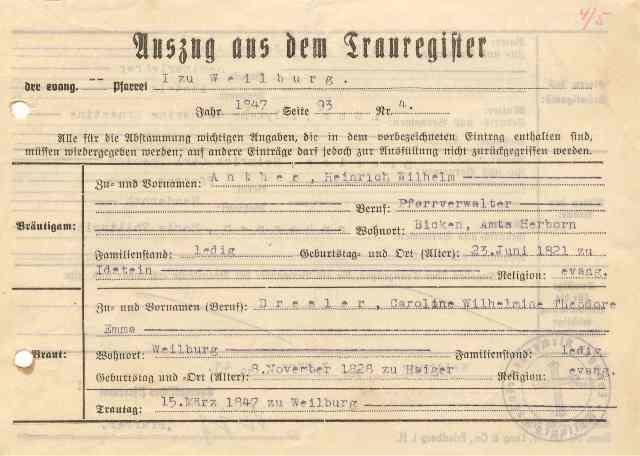 4/5
Auszug aus dem Trauregister
der evang. -- Pfarrei I zu Weilburg.
Jahr 1847 Seite 93 Nr. 4.
Alle für die Abstammung wichtigen Angaben, die in dem vorbezeichneten Eintrag enthalten sind,
müssen wiedergegeben werden; auf andere Einträge darf jedoch zur Ausfüllung nicht zurückgegriffen werden.
Bräutigam:
Zu- und Vornamen: Anthes, Heinrich Wilhelm
Beruf: Pfarrverwalter
Wohnort: Bicken, Amts Herborn
Familienstand: ledig Geburtstag- und Ort (Alter): 23.Juni 1821 zu
Idstein Religion: evang.
Braut:
Zu- und Vornamen (Beruf): Dresler, Caroline Wilhelmine Theodore
Emma
Wohnort: Weilburg Familienstand: ledig
Geburtstag und -Ort (Alter): 8.November 1828 zu Haiger Religion: evang.
Trautag: 15.März 1847 zu Weilburg